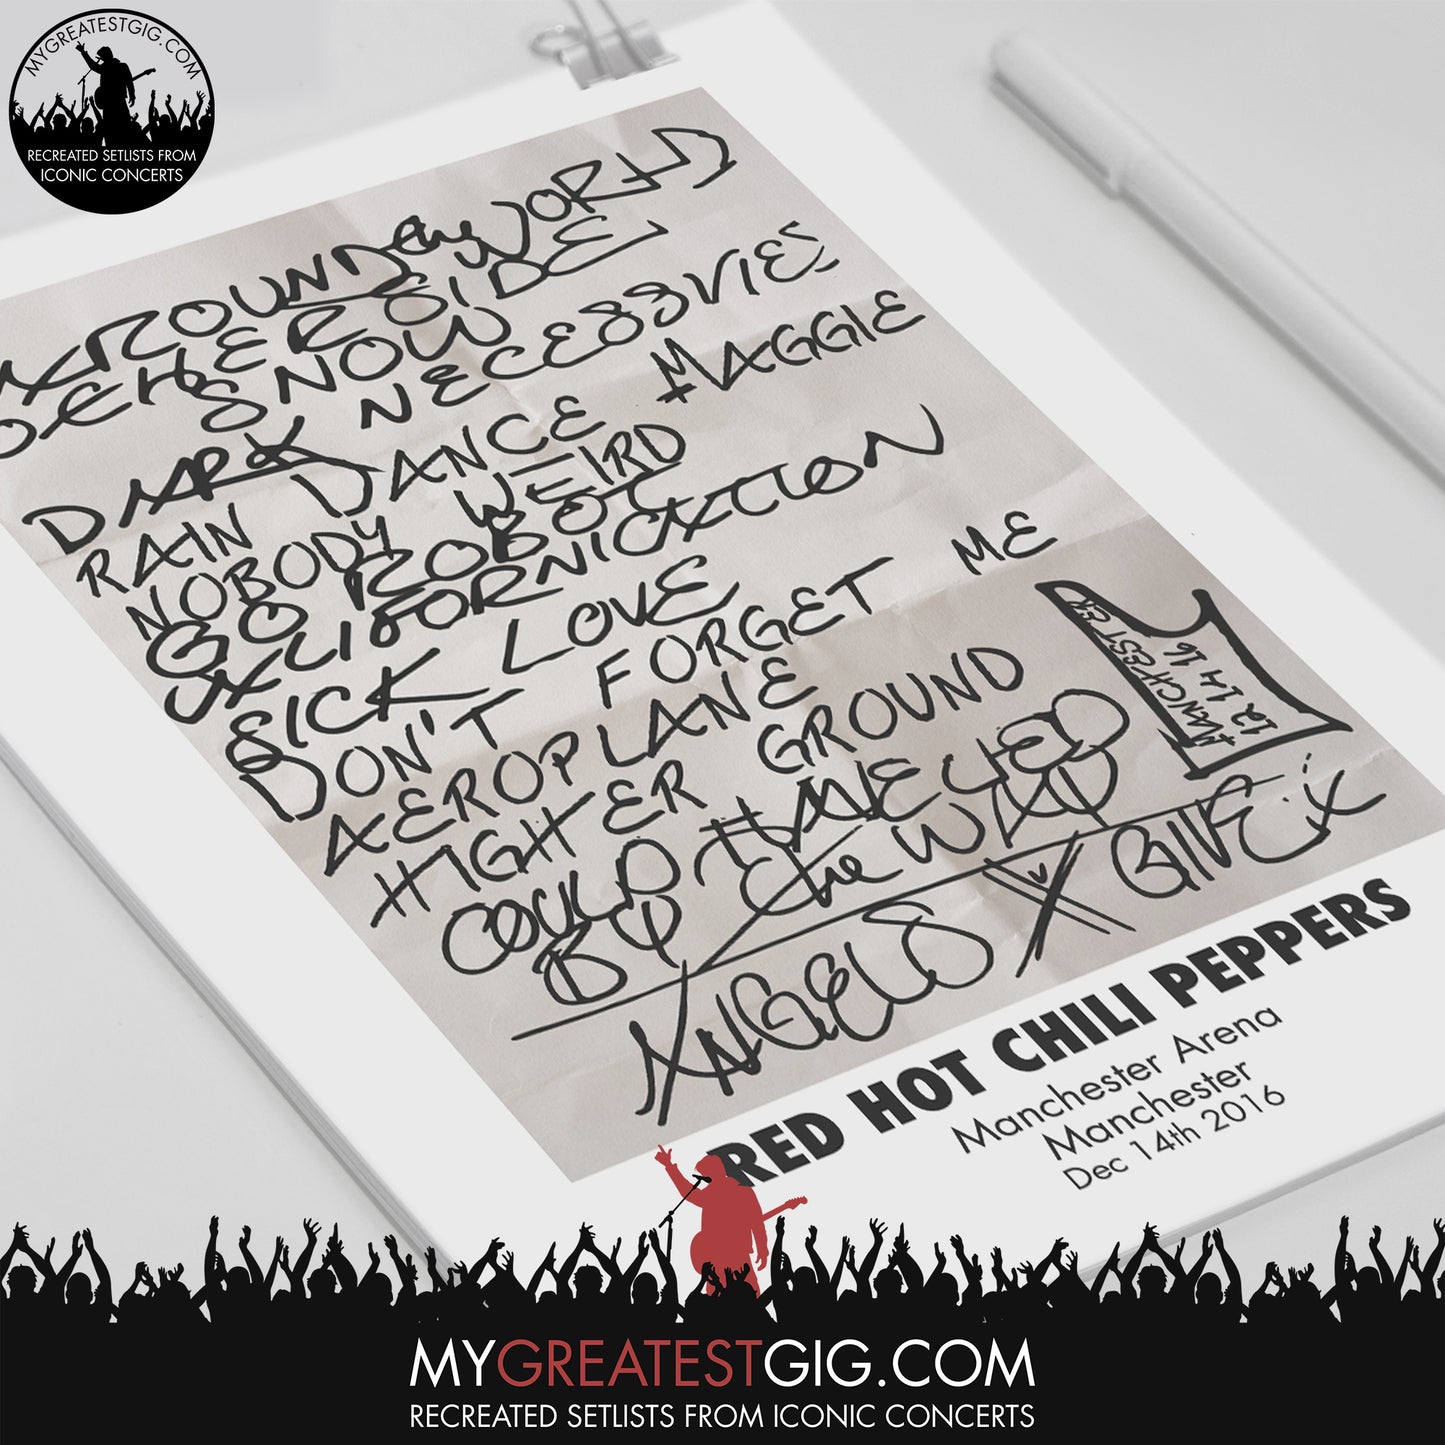 MYGREATESTGIG.COM
RECREATED SETLISTS FROM
ICONIC CONCERTS
AROUND the WORLD
OTHERSIDE
SNOW
DARK NECESSVIES
RAIN DANCE MAGGIE
NOBODY WEIRD
GO ROBOT
CALIFORNICATION
SICK LOVE
DON'T FORGET ME
AEROPLANE
HIGHER GROUND
COULD HAVE LIED
BY the WAY
ANGELS
GIVE
MANCHESTER
12 14 16
RED HOT CHILI PEPPERS
Manchester Arena
Manchester
Dec 14th 2016
MYGREATESTGIG.COM
RECREATED SETLISTS FROM ICONIC CONCERTS